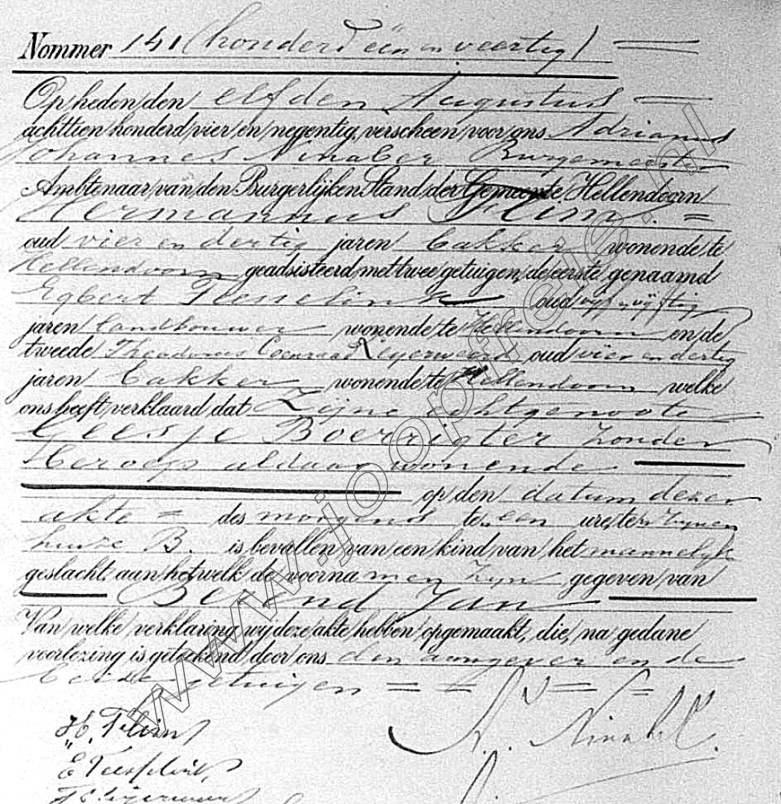 Nommer 141 (honderd één en veertig)
Op heden den elfden Augustus
achttien honderd vier en negentig, verscheen voor ons Adrianus
Johannes Ninaber Burgemeester
Ambtenaar van den Burgerlijken Stand der Gemeente Hellendoorn
Hermannus
oud vier en dertig jaren bakker wonende te
Hellendoorn geadsisteerd met twee getuigen, de eerste genaamd
Egbert oud vijf en vijftig
jaren landbouwer wonende te Hellendoorn en de
tweede Theodorus Coenraad oud vier en dertig
jaren bakker wonende te Hellendoorn welke
ons heeft verklaard, dat Zijne echtgenoote
Geesje Boerrigter zonder
beroep aldaar wonende
op den datum dezer
akte des morgens te een ure, ter zijnen
huize B. is bevallen van een kind van het mannelijk
geslacht, aan hetwelk de voornamen zijn gegeven van
Berend Jan
Van welke verklaring wij deze akte hebben opgemaakt, die, na gedane
voorlezing is geteekend door ons den aangever en de
beide getuigen
H.
E
A. Ninaber
www.joopfreie.nl